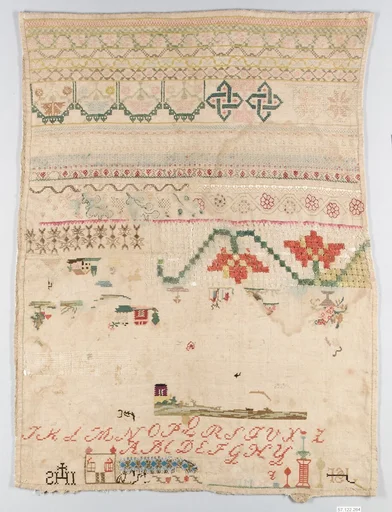 I K L M N O P Q R S T V X Z
A A L D E F G H Y
IHS
57.122.304